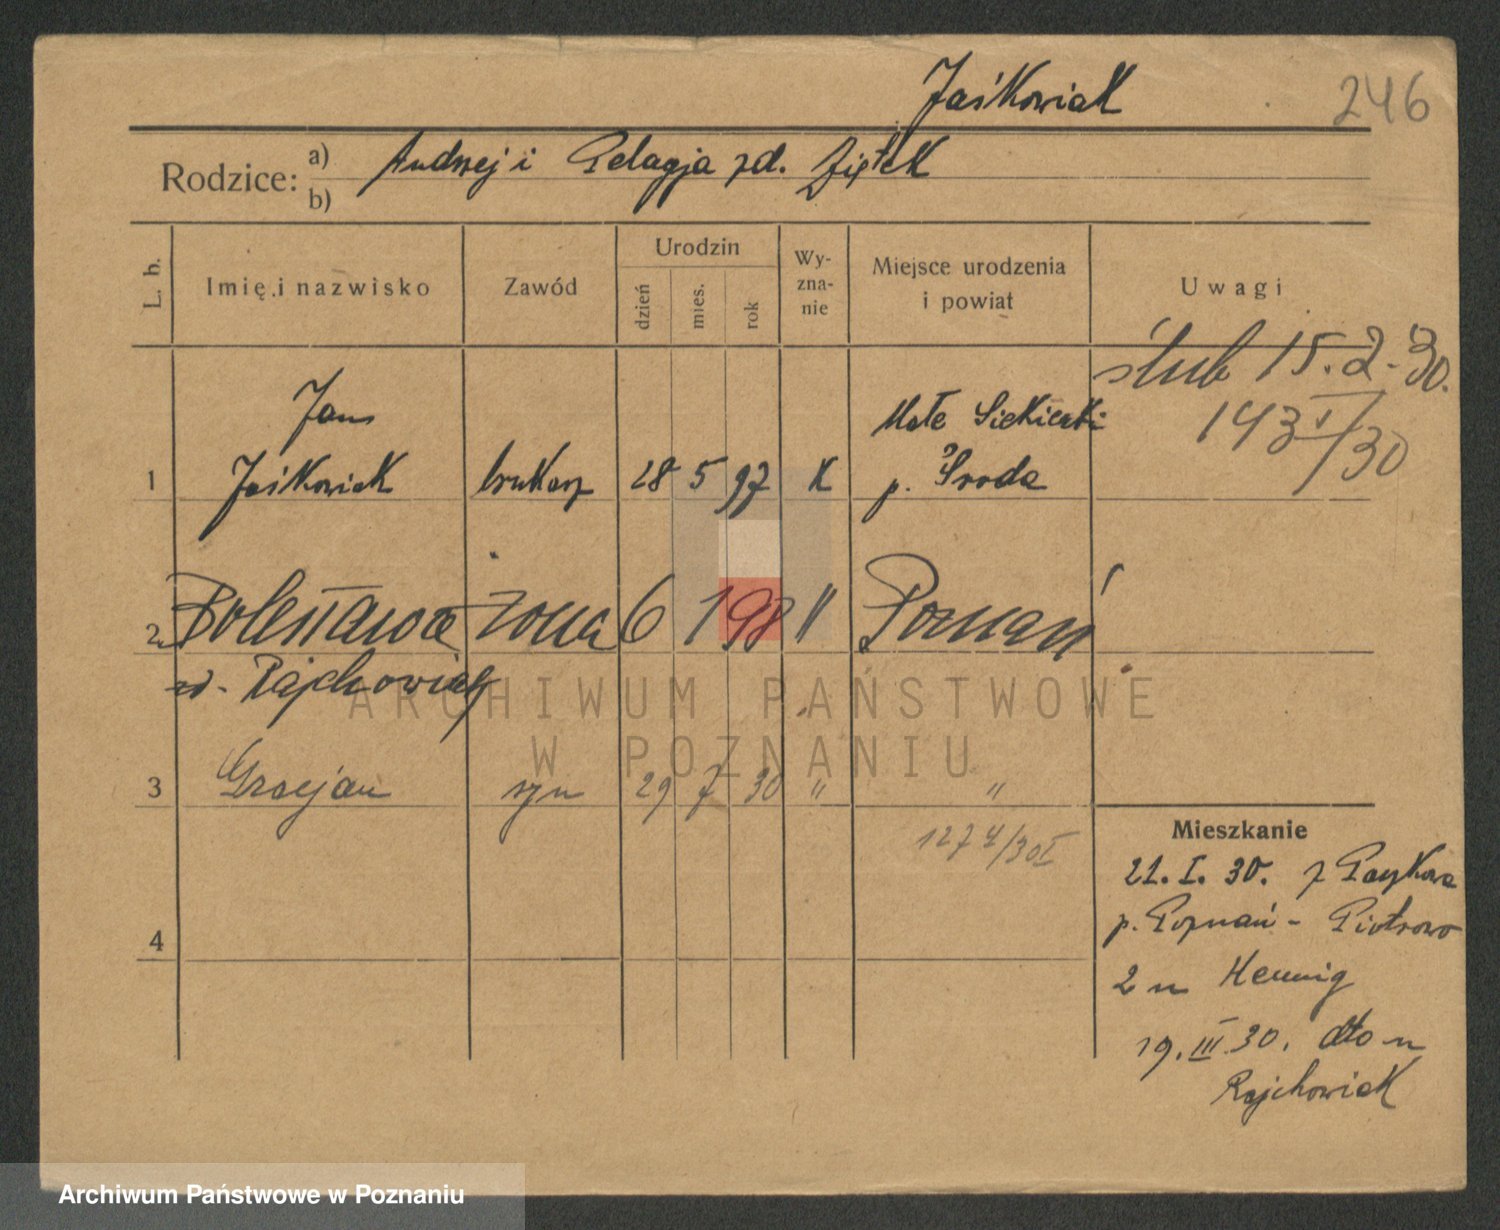 Jaśkowiak
246
Rodzice: a) Andrzej i Pelagja zd. Ziętek
b)
L. b. Imię i nazwisko Zawód Urodzin dzień mies. rok Wy-zna-nie Miejsce urodzenia i powiat Uwagi
ślub 15.2.30.
143 I/30
Jan Małe Siekierki
1 Jaśkowiak brukarz 28 5 97 K p. Środa
2 Bolesława żona 6 1 98 " Poznań
zd. Rajchowiak
ARCHIWUM PAŃSTWOWE
W POZNANIU
3 Gracjan syn 29 7 30 " "
1274/30 I
4
Mieszkanie
21. I. 30. z
p. Poznań - Piotrowo
2 u Hennig
19. III 30. dto u
Rajchowiak
Archiwum Państwowe w Poznaniu